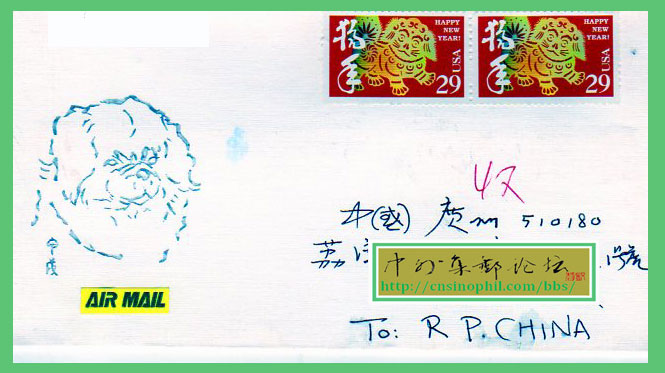 狗年
HAPPY
NEW
YEAR!
USA
29
狗年
HAPPY
NEW
YEAR!
USA
29
收
中(國) 广州 510180
荔
號
中外集郵论坛
http://cnsinophil.com/bbs/
甲戌
AIR MAIL
To: R P. CHINA